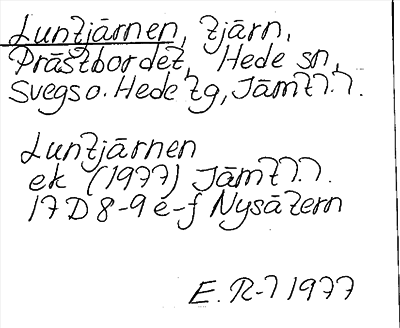 Luntjärnen, tjärn,
Prästbordet, Hede sn,
Svegs o. Hede tg, Jämtl.
Luntjärnen
ek (1977) Jämtl.
17D 8-9 e-f Nysätern
E. R-l 1977